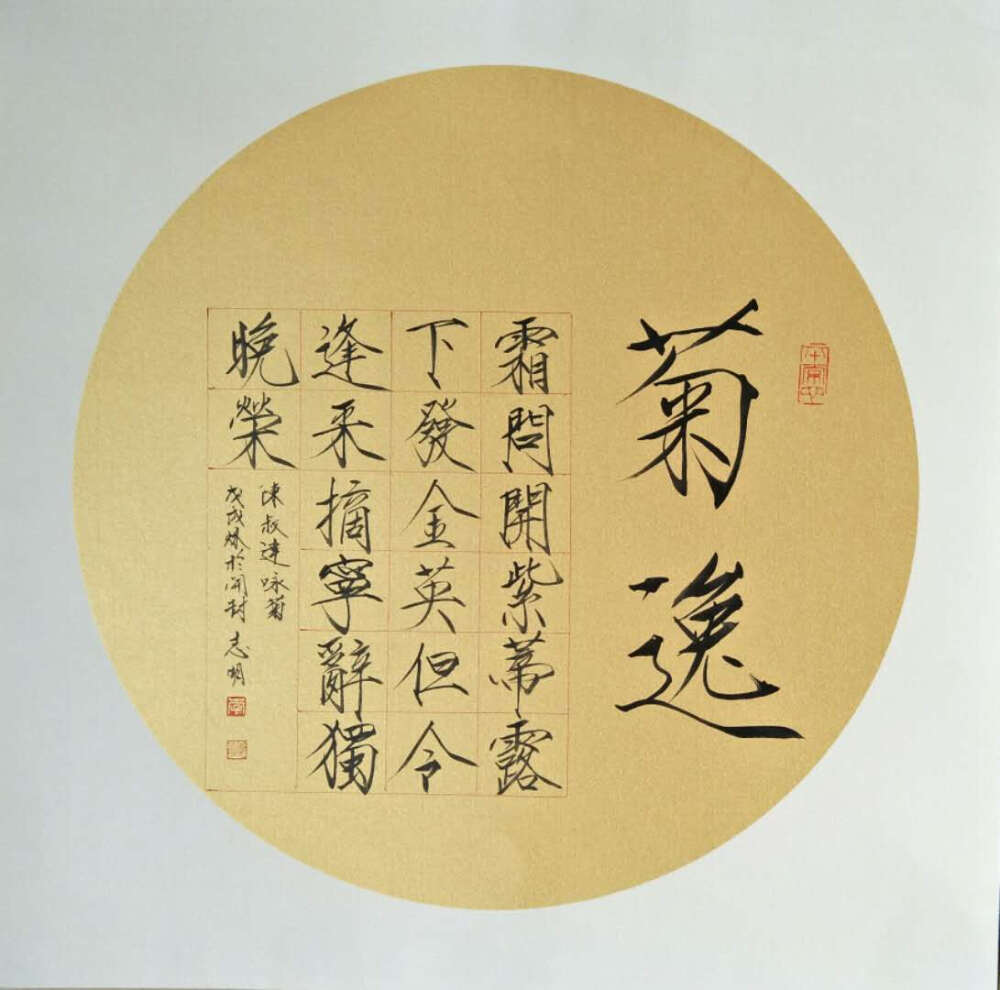 菊逸
霜間開紫蒂露
下發金英但令
逢采摘寧辭獨
晚榮
陳叔達咏菊
戊戌秋於開封 志明